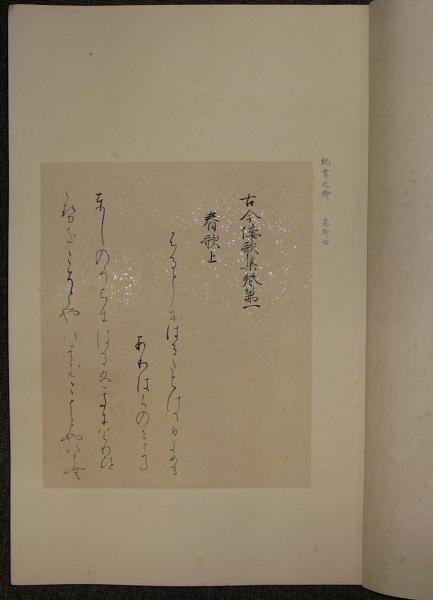 紀貫之郷 高野切
古今倭歌集巻第一
春歌上
ふるとしにはるたちけるひよめる
ありはらのもとかた
としのうちにはるはきにけりひとゝせ
をこそとやいはむことしとやいはむ